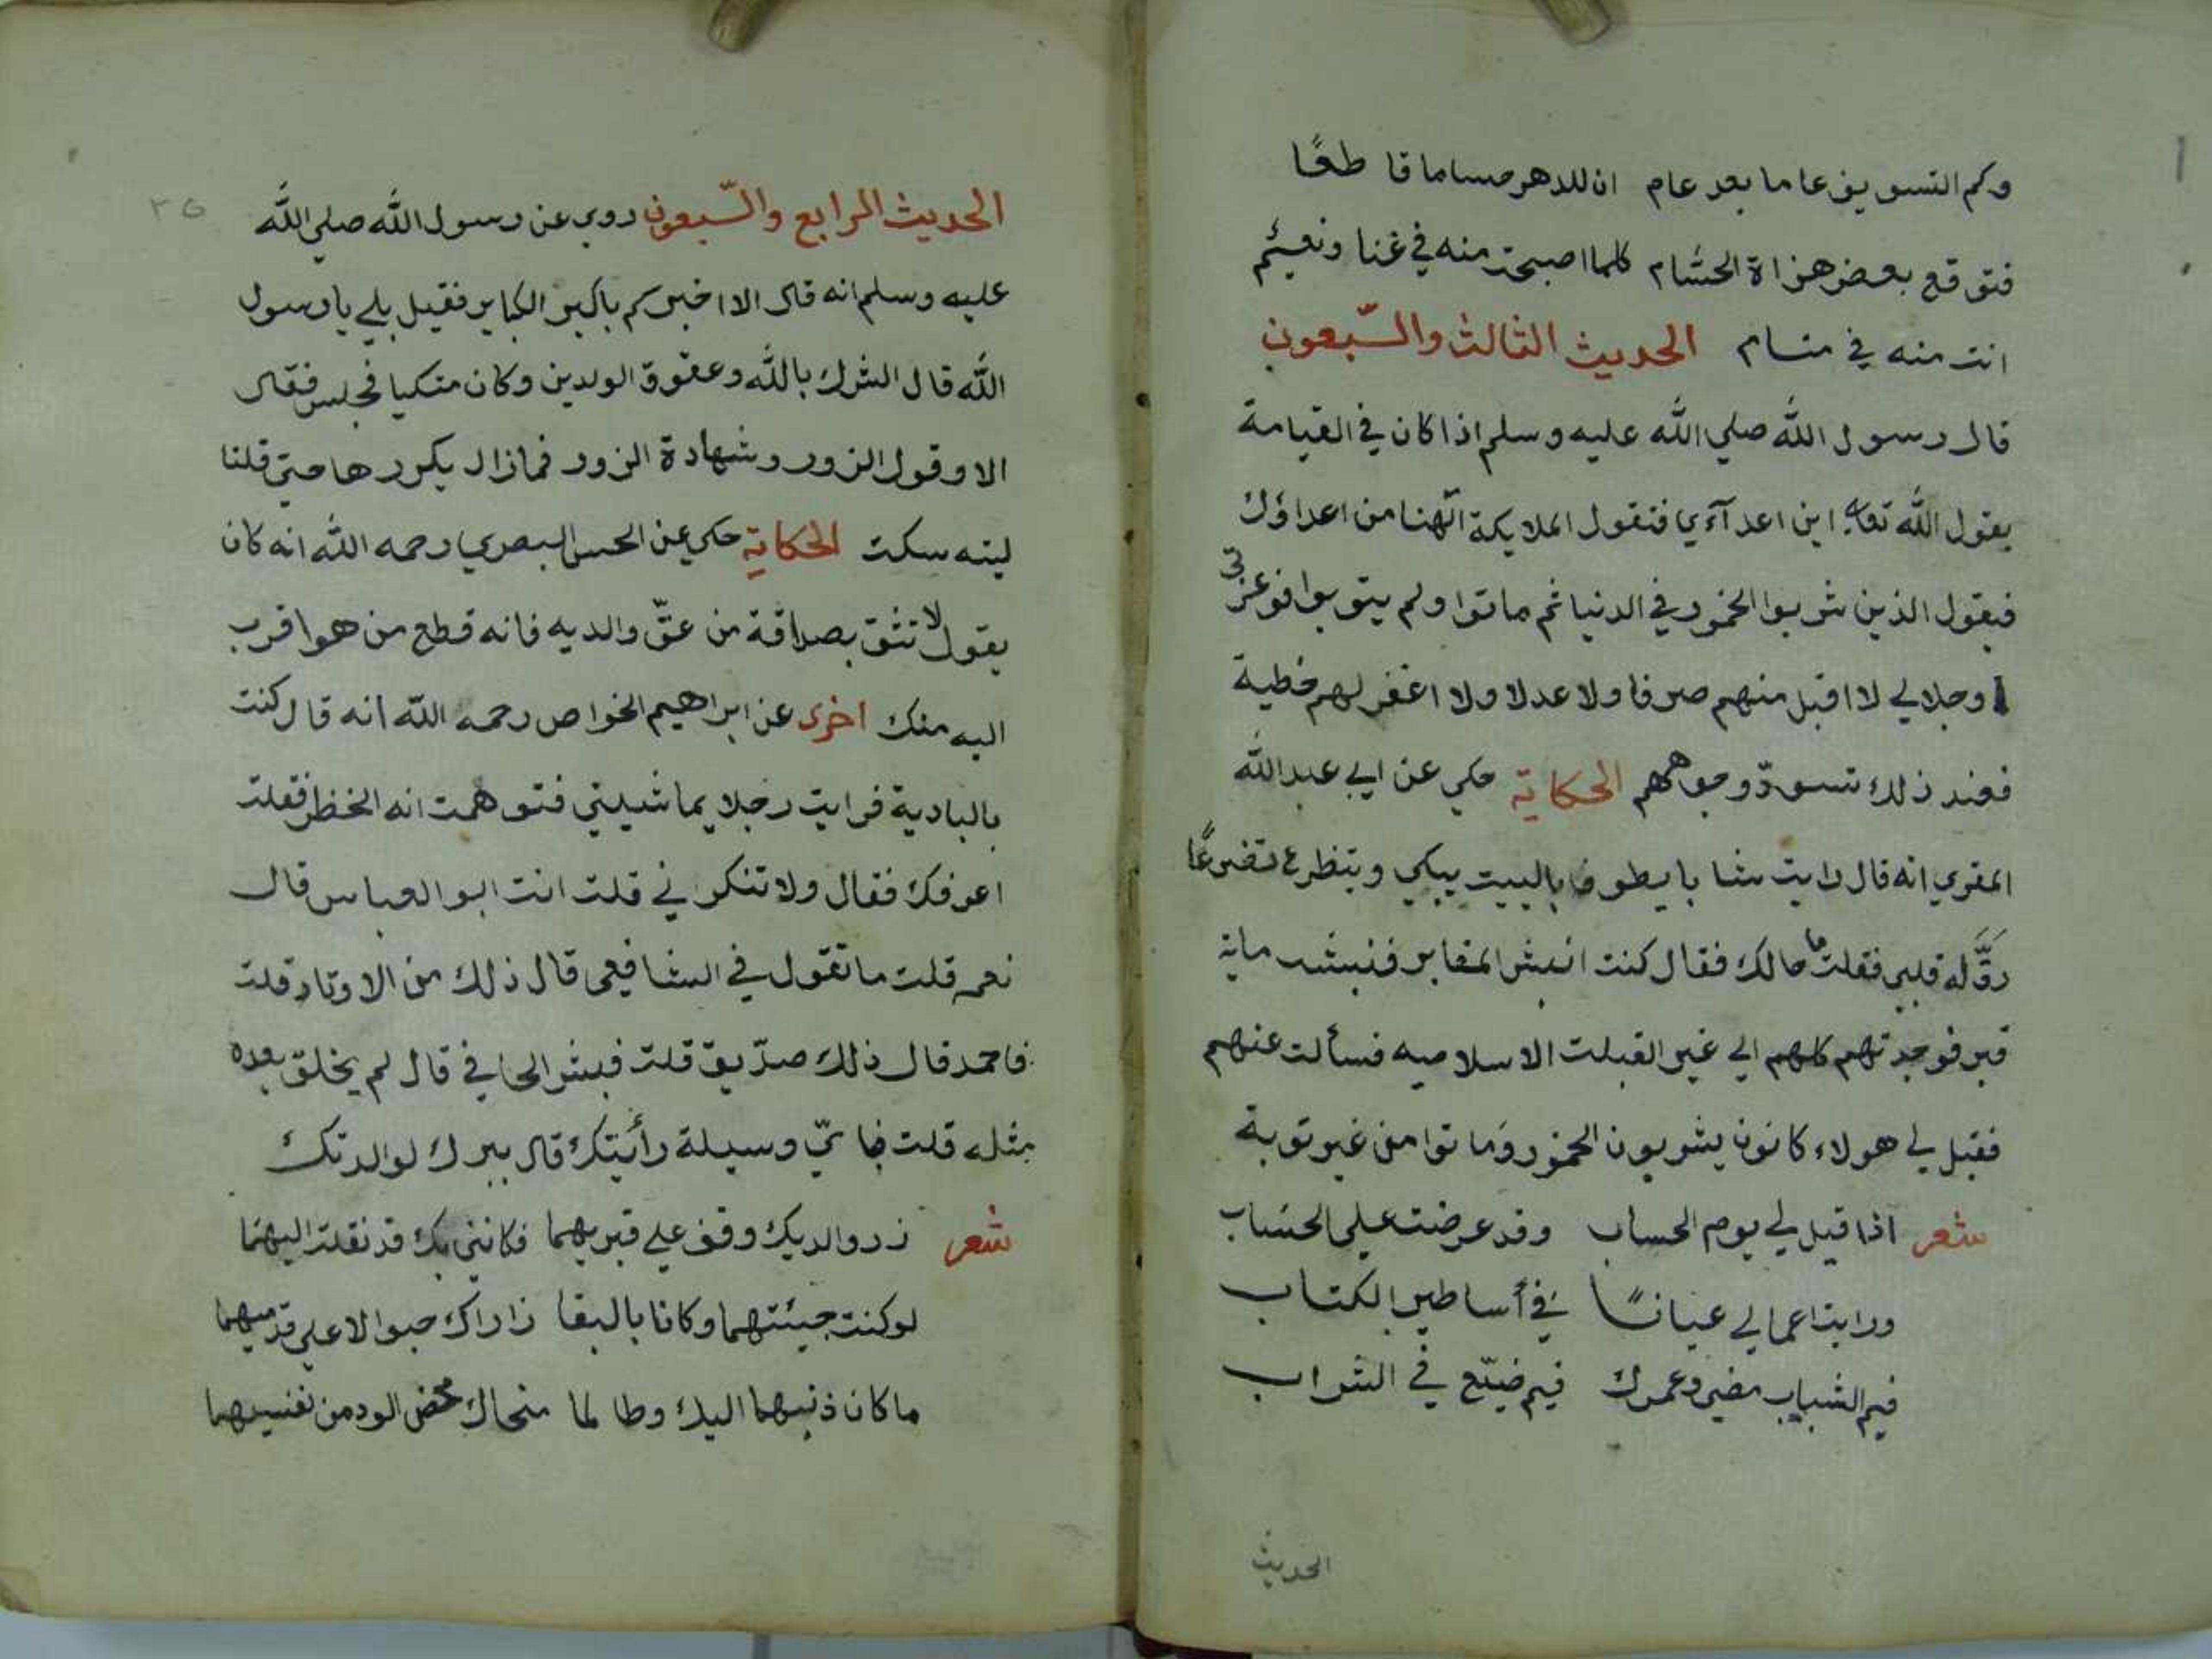 وكم التسويف عاما بعد عام ان للدهر حساما قاطعًا
فتوقع بعض هزاة الحسام كلما اصبحت منه في غنا ونعيم
انت منه في منام الحديث الثالث والسّبعون
قال رسول الله صلي الله عليه وسلم اذا كان في القيامة
يقول الله تعالي اين اعدآءي فتقول الملايكة الهنا من اعداؤك
فيقول الذين شربوا الخمور في الدنيا ثم ماتوا ولم يتوبوا فوعزتي
وجلالي لا اقبل منهم صرفا ولا عدلا ولا اغفر لهم خطية
فعند ذلك تسودّ وجوههم الحكاية حكي عن ابي عبد الله
المقري انه قال رايت شابا يطوف بالبيت يبكي ويتظرع تضرعًا
رَقَّ له قلبي فقلت ما حالك فقال كنت انبش المقابر فنبشت ماية
قبر فوجدتهم كلهم الي غير القبلت الاسلاميه فسألت عنهم
فقيل لي هولاء كانون يشربون الخمور وماتوا من غير توبة
شعر اذا قيل لي يوم الحساب وقد عرضت علي الحساب
ورايت اعمالي عيانًا في أساطير الكتاب
فيم الشباب مضي وعمرك فيم ضيّع في الشراب
الحديث
٣٥
الحديث الرابع والسّبعون روي عن رسول الله صلي الله
عليه وسلم انه قال الا اخبركم باكبر الكباير فقيل بلي يا رسول
الله قال الشرك بالله وعقوق الولدين وكان متكيا فجلس فقال
الا وقول الزور وشهادة الزور فمازال يكررها حتي قلنا
ليته سكت الحكاية حكي عن الحسن البصري رحمه الله انه كان
يقول لا تثق بصداقة من عقّ والديه فانه قطع من هو اقرب
اليه منك اخرى عن ابراهيم الخواص رحمه الله انه قال كنت
بالبادية فرايت رجلا يماشيني فتوهمت انه الخظر فقلت
اعرفك فقال ولا تنكرني قلت انت ابو العباس قال
نعم قلت ما تقول في الشافعي قال ذلك من الاوتاد قلت
فاحمد قال ذلك صدّيق قلت فبشر الحافي قال لم يخلق بعده
مثله قلت فبايّ وسيلة رأيتك قال ببرك لوالدتك
شعر زر والديك وقف علي قبريهما فكانني بك قد نقلت اليهما
لو كنت حيئتهما وكانا بالبقا زاراك حبوا لا علي قدميهما
ما كان ذنبهما اليك وطالما منحاك محض الود من نفسيهما